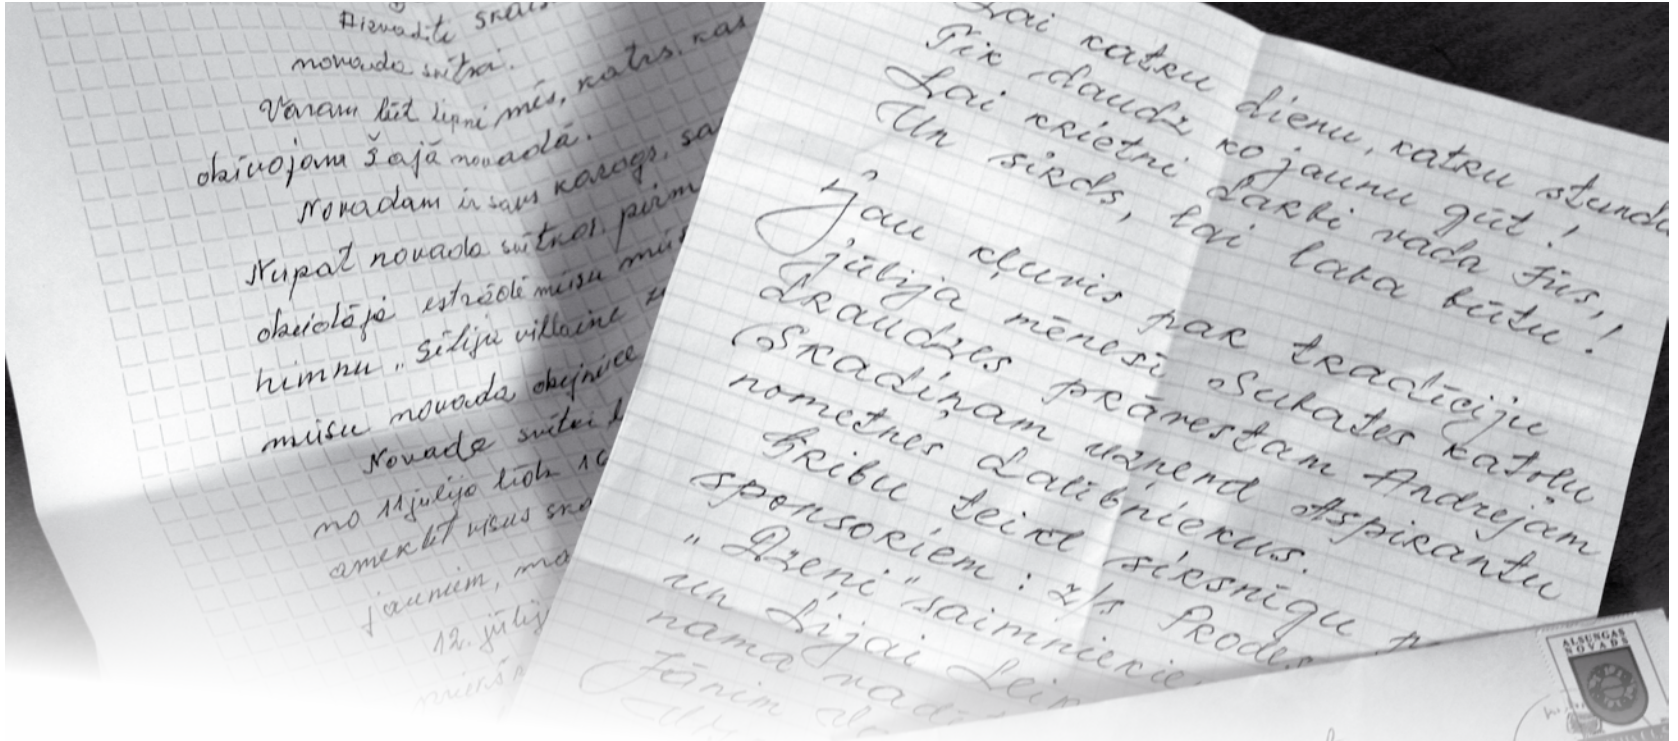 Aizvadīti skais
novada svētki.
Varam būt lepni mēs, katrs, kas
dzīvojam šajā novadā.
Novadam ir savs karogs, sa
Nupat novada svētkos, pirm
dziedāja estrādē mūsu mūs
himnu „Sēlijų villaine
mūsu novada dzejniece
Novada svētki
no 11 jūlija līdz 1
apmeklēt visus ska
jauniem, ma
12. jūlij
Lai katru dienu, katru stundu
Tik daudz ko jaunu gūt!
Lai krietni darbi vada Jūs,
Un sirds, lai laba būtu!
Jau kļuvis par tradīciju
jūlija mēnesī Subates katoļu
draudzes prāvestam Andrejam
Skadiņam uzņemt Aspirantu
nometnes dalībniekus.
Gribu teikt sirsnīgu p
sponsoriem: z/s Prodes
„Dzeņi" saimniekie
un Lijai Lein
nama va
Jānim
ALSUNGAS
NOVADS